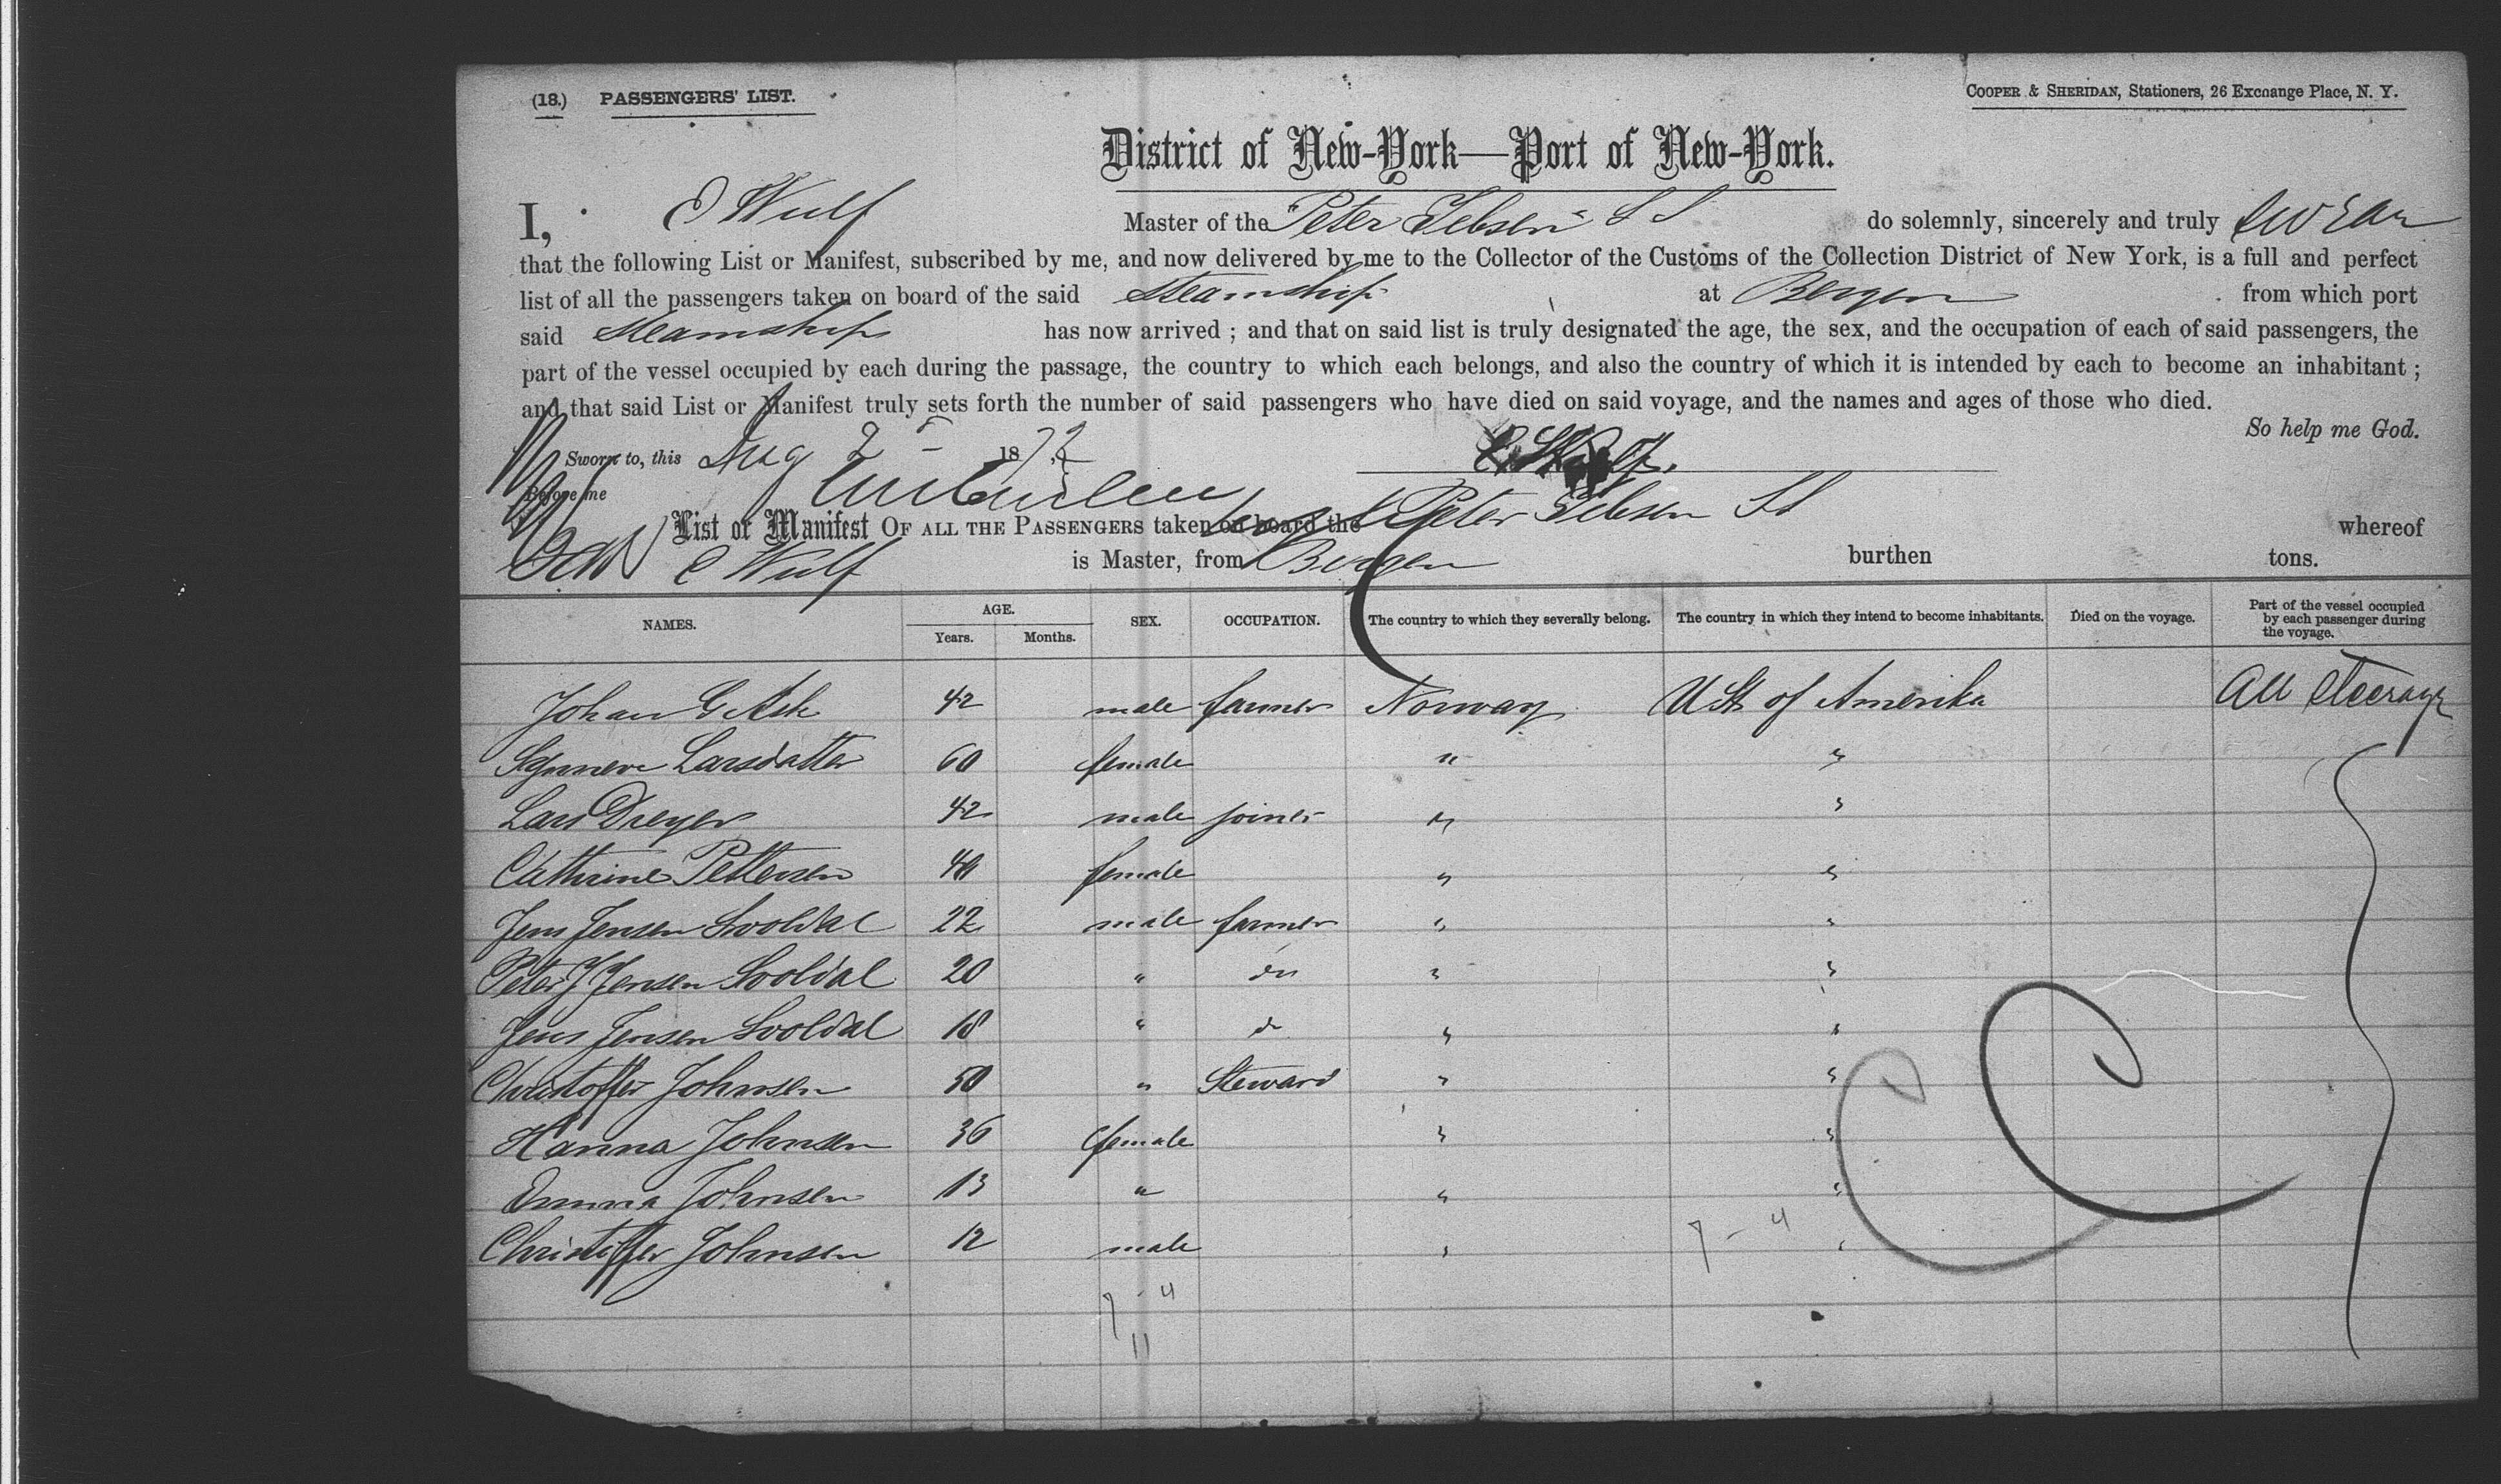 (18.) PASSENGERS' LIST.
COOPER & SHERIDAN, Stationers, 26 Exchange Place, N. Y.
District of New-York—Port of New-York.
I, C Wulf Master of the "Peter Jebsen" SS do solemnly, sincerely and truly swear
that the following List or Manifest, subscribed by me, and now delivered by me to the Collector of the Customs of the Collection District of New York, is a full and perfect
list of all the passengers taken on board of the said Steamship at Bergen from which port
said Steamship has now arrived ; and that on said list is truly designated the age, the sex, and the occupation of each of said passengers, the
part of the vessel occupied by each during the passage, the country to which each belongs, and also the country of which it is intended by each to become an inhabitant ;
and that said List or Manifest truly sets forth the number of said passengers who have died on said voyage, and the names and ages of those who died.
So help me God.
Sworn to, this Aug 2 1872 C. Wulf.
Before me
List or Manifest OF ALL THE PASSENGERS taken on board the Peter Jebsen SS whereof
C Wulf is Master, from Bergen burthen tons.
NAMES. AGE. Years. Months. SEX. OCCUPATION. The country to which they severally belong. The country in which they intend to become inhabitants. Died on the voyage. Part of the vessel occupied by each passenger during the voyage.
Johan G Ask 42 male farmer Norway USt of Amerika All Steerage
Synneve Larsdatter 60 female " "
Lars Dreyer 42 male joiner " "
Cathrine Pettersen 40 female " "
Jens Jensen Svoldal 22 male farmer " "
Peter J Jensen Svoldal 20 " do " "
Jens Jensen Svoldal 18 " do " "
Christoffer Johnsen 50 " Steward " "
Hanna Johnsen 36 female " "
Emma Johnsen 13 " " "
Christoffer Johnsen 12 male " "
7 - 4
7 - 4
11